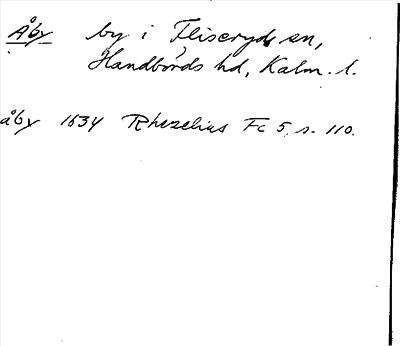 Åby by i Fliseryds sn,
Handbörds hd, Kalm. l.
åby 1634 Rhezelius Fc 5, s. 110.